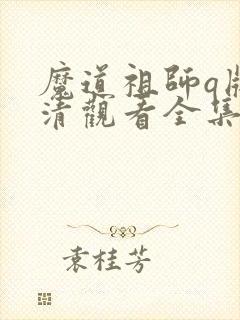 魔道祖師q版
清觀看全集
袁桂芳